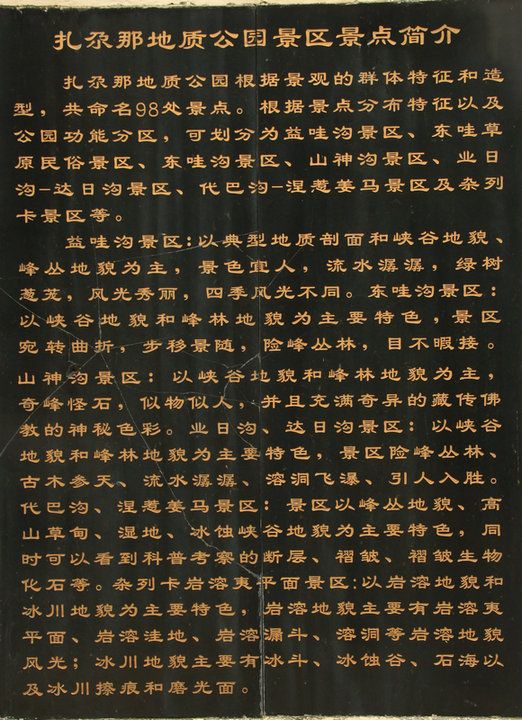 扎尕那地质公园景区景点简介
扎尕那地质公园根据景观的群体特征和造
型，共命名98处景点。根据景点分布特征以及
公园功能分区，可划分为益哇沟景区、东哇草
原民俗景区、东哇沟景区、山神沟景区、业日
沟-达日沟景区、代巴沟-涅惹姜马景区及杂列
卡景区等。
益哇沟景区：以典型地质剖面和峡谷地貌、
峰丛地貌为主，景色宜人，流水潺潺，绿树
葱茏，风光秀丽，四季风光不同。东哇沟景区：
以峡谷地貌和峰林地貌为主要特色，景区
宛转曲折，步移景随，险峰丛林，目不暇接。
山神沟景区：以峡谷地貌和峰林地貌为主，
奇峰怪石，似物似人，并且充满奇异的藏传佛
教的神秘色彩。业日沟、达日沟景区：以峡谷
地貌和峰林地貌为主要特色，景区险峰丛林、
古木参天、流水潺潺、溶洞飞瀑、引人入胜。
代巴沟、涅惹姜马景区：景区以峰丛地貌、高
山草甸、湿地、冰蚀峡谷地貌为主要特色，同
时可以看到科普考察的断层、褶皱、褶皱生物
化石等。杂列卡岩溶夷平面景区：以岩溶地貌和
冰川地貌为主要特色，岩溶地貌主要有岩溶夷
平面、岩溶洼地、岩溶漏斗、溶洞等岩溶地貌
风光；冰川地貌主要有冰斗、冰蚀谷、石海以
及冰川擦痕和磨光面。